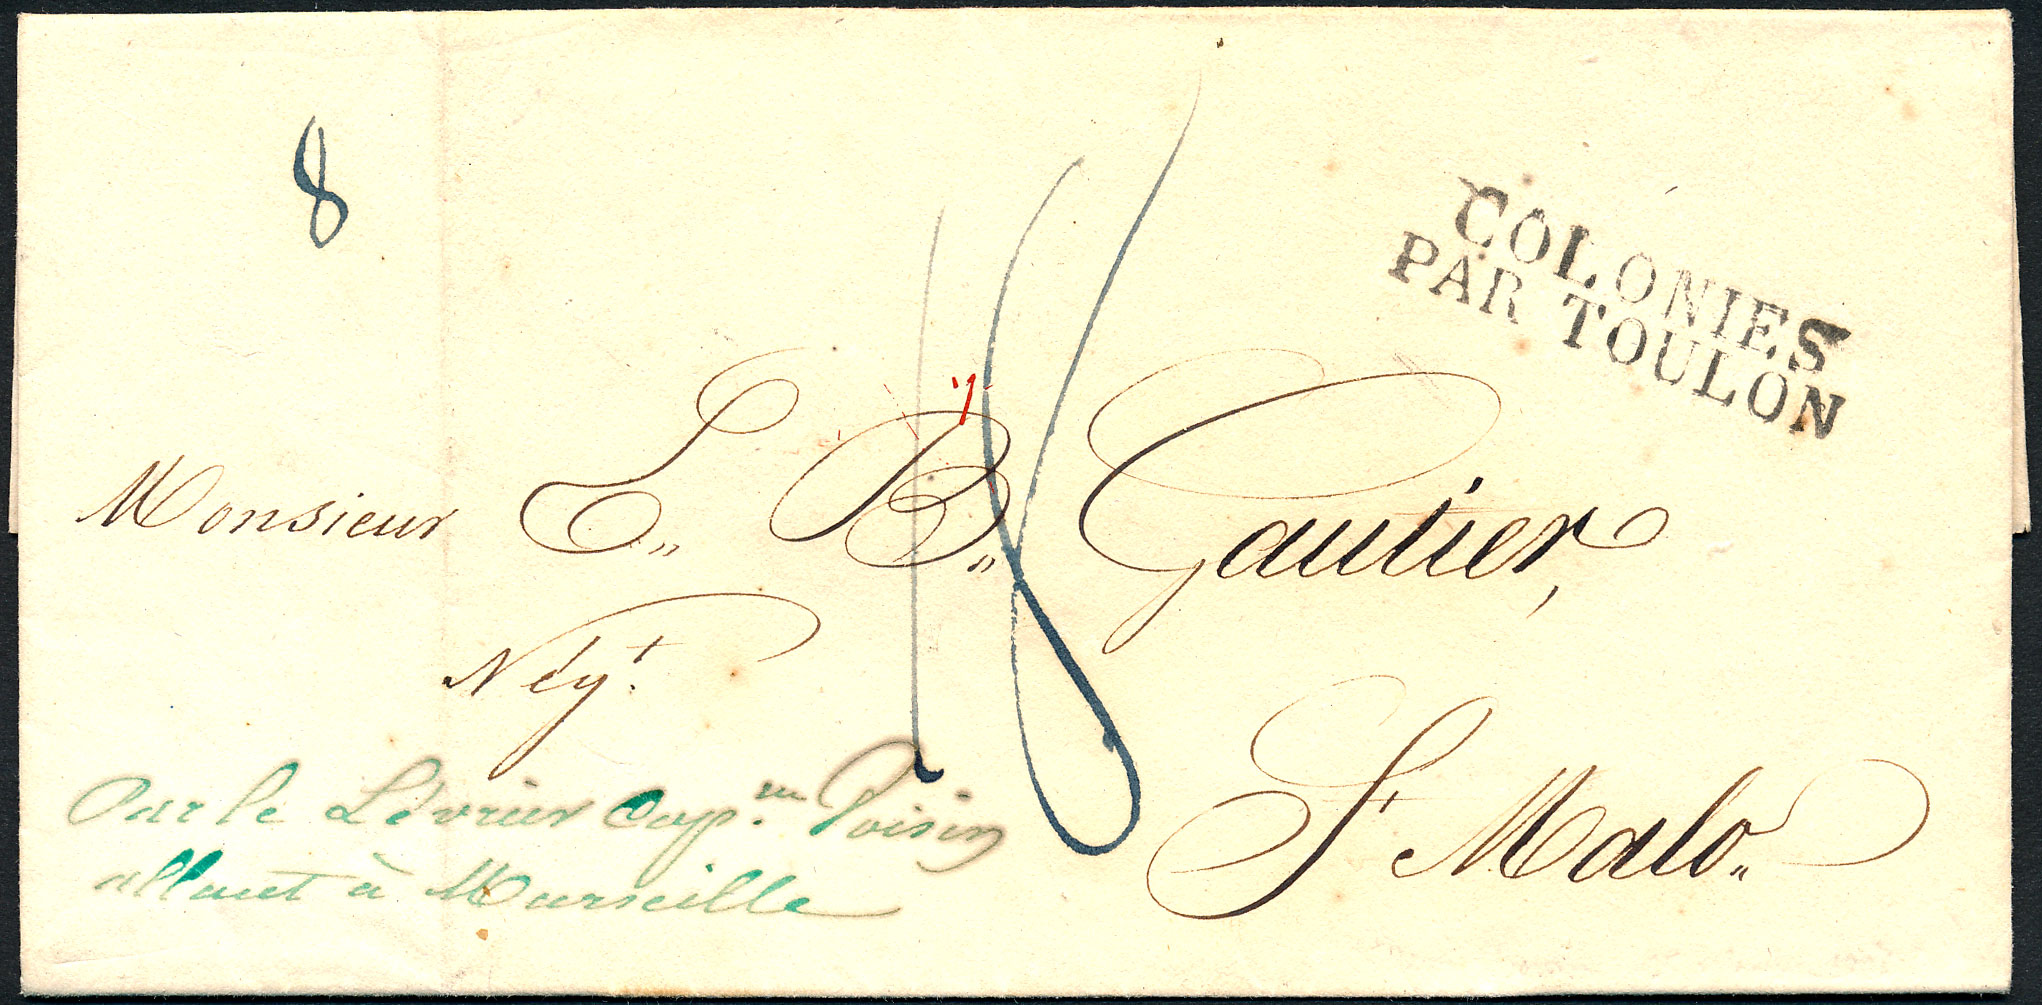 8
18
COLONIES
PAR TOULON
Monsieur L. B. Gautier,
Nég.t
Par le Lévrier Cap.ne Voisin
allant à Marseille
St Malo